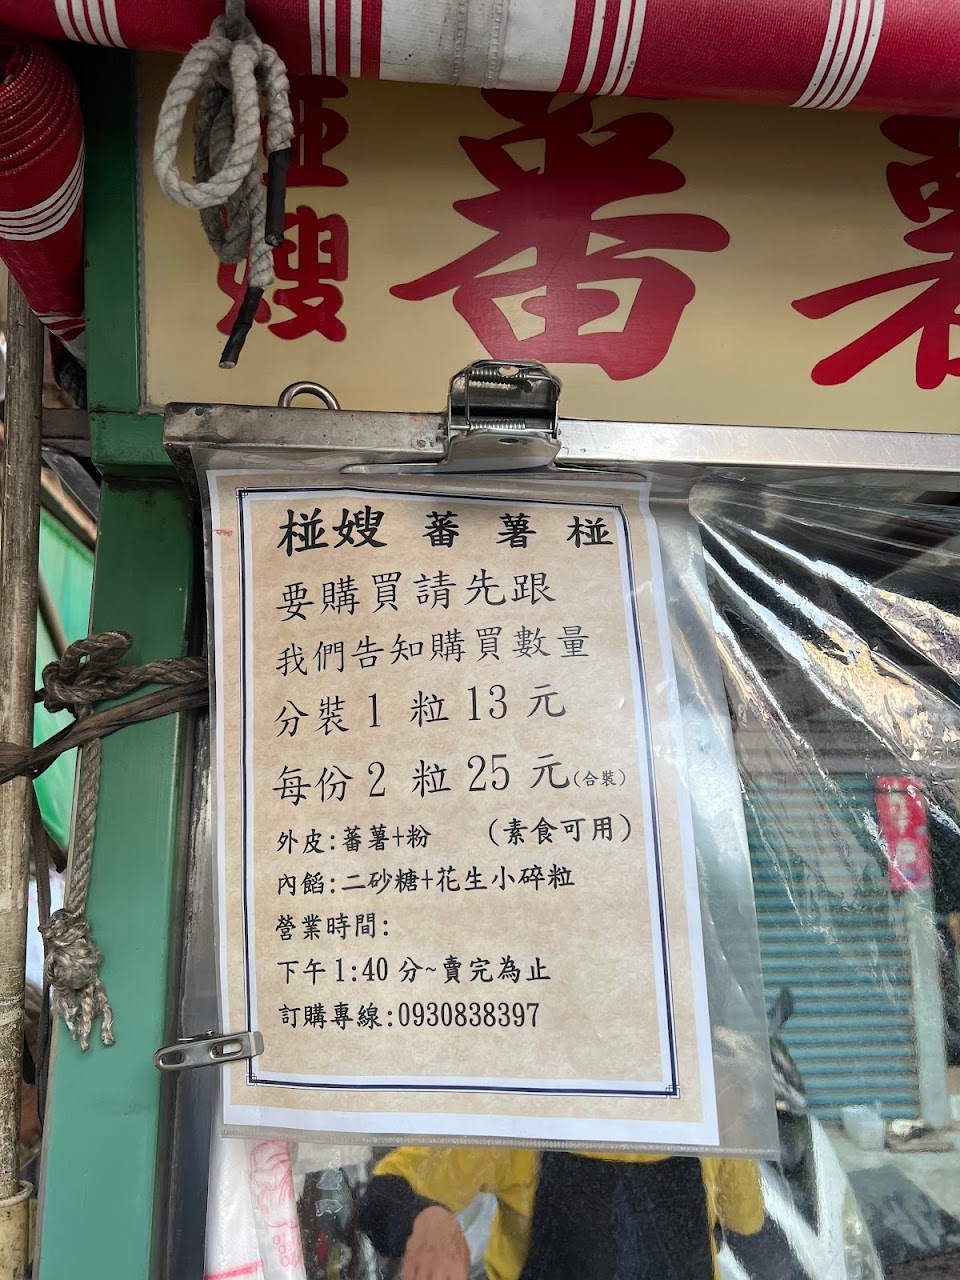 嫂
蕃
椪嫂 蕃 薯 椪
要購買請先跟
我們告知購買數量
分裝 1 粒 13 元
每份 2 粒 25 元(合裝)
外皮:蕃薯+粉 (素食可用)
內餡:二砂糖+花生小碎粒
營業時間:
下午 1:40 分~賣完為止
訂購專線:0930838397